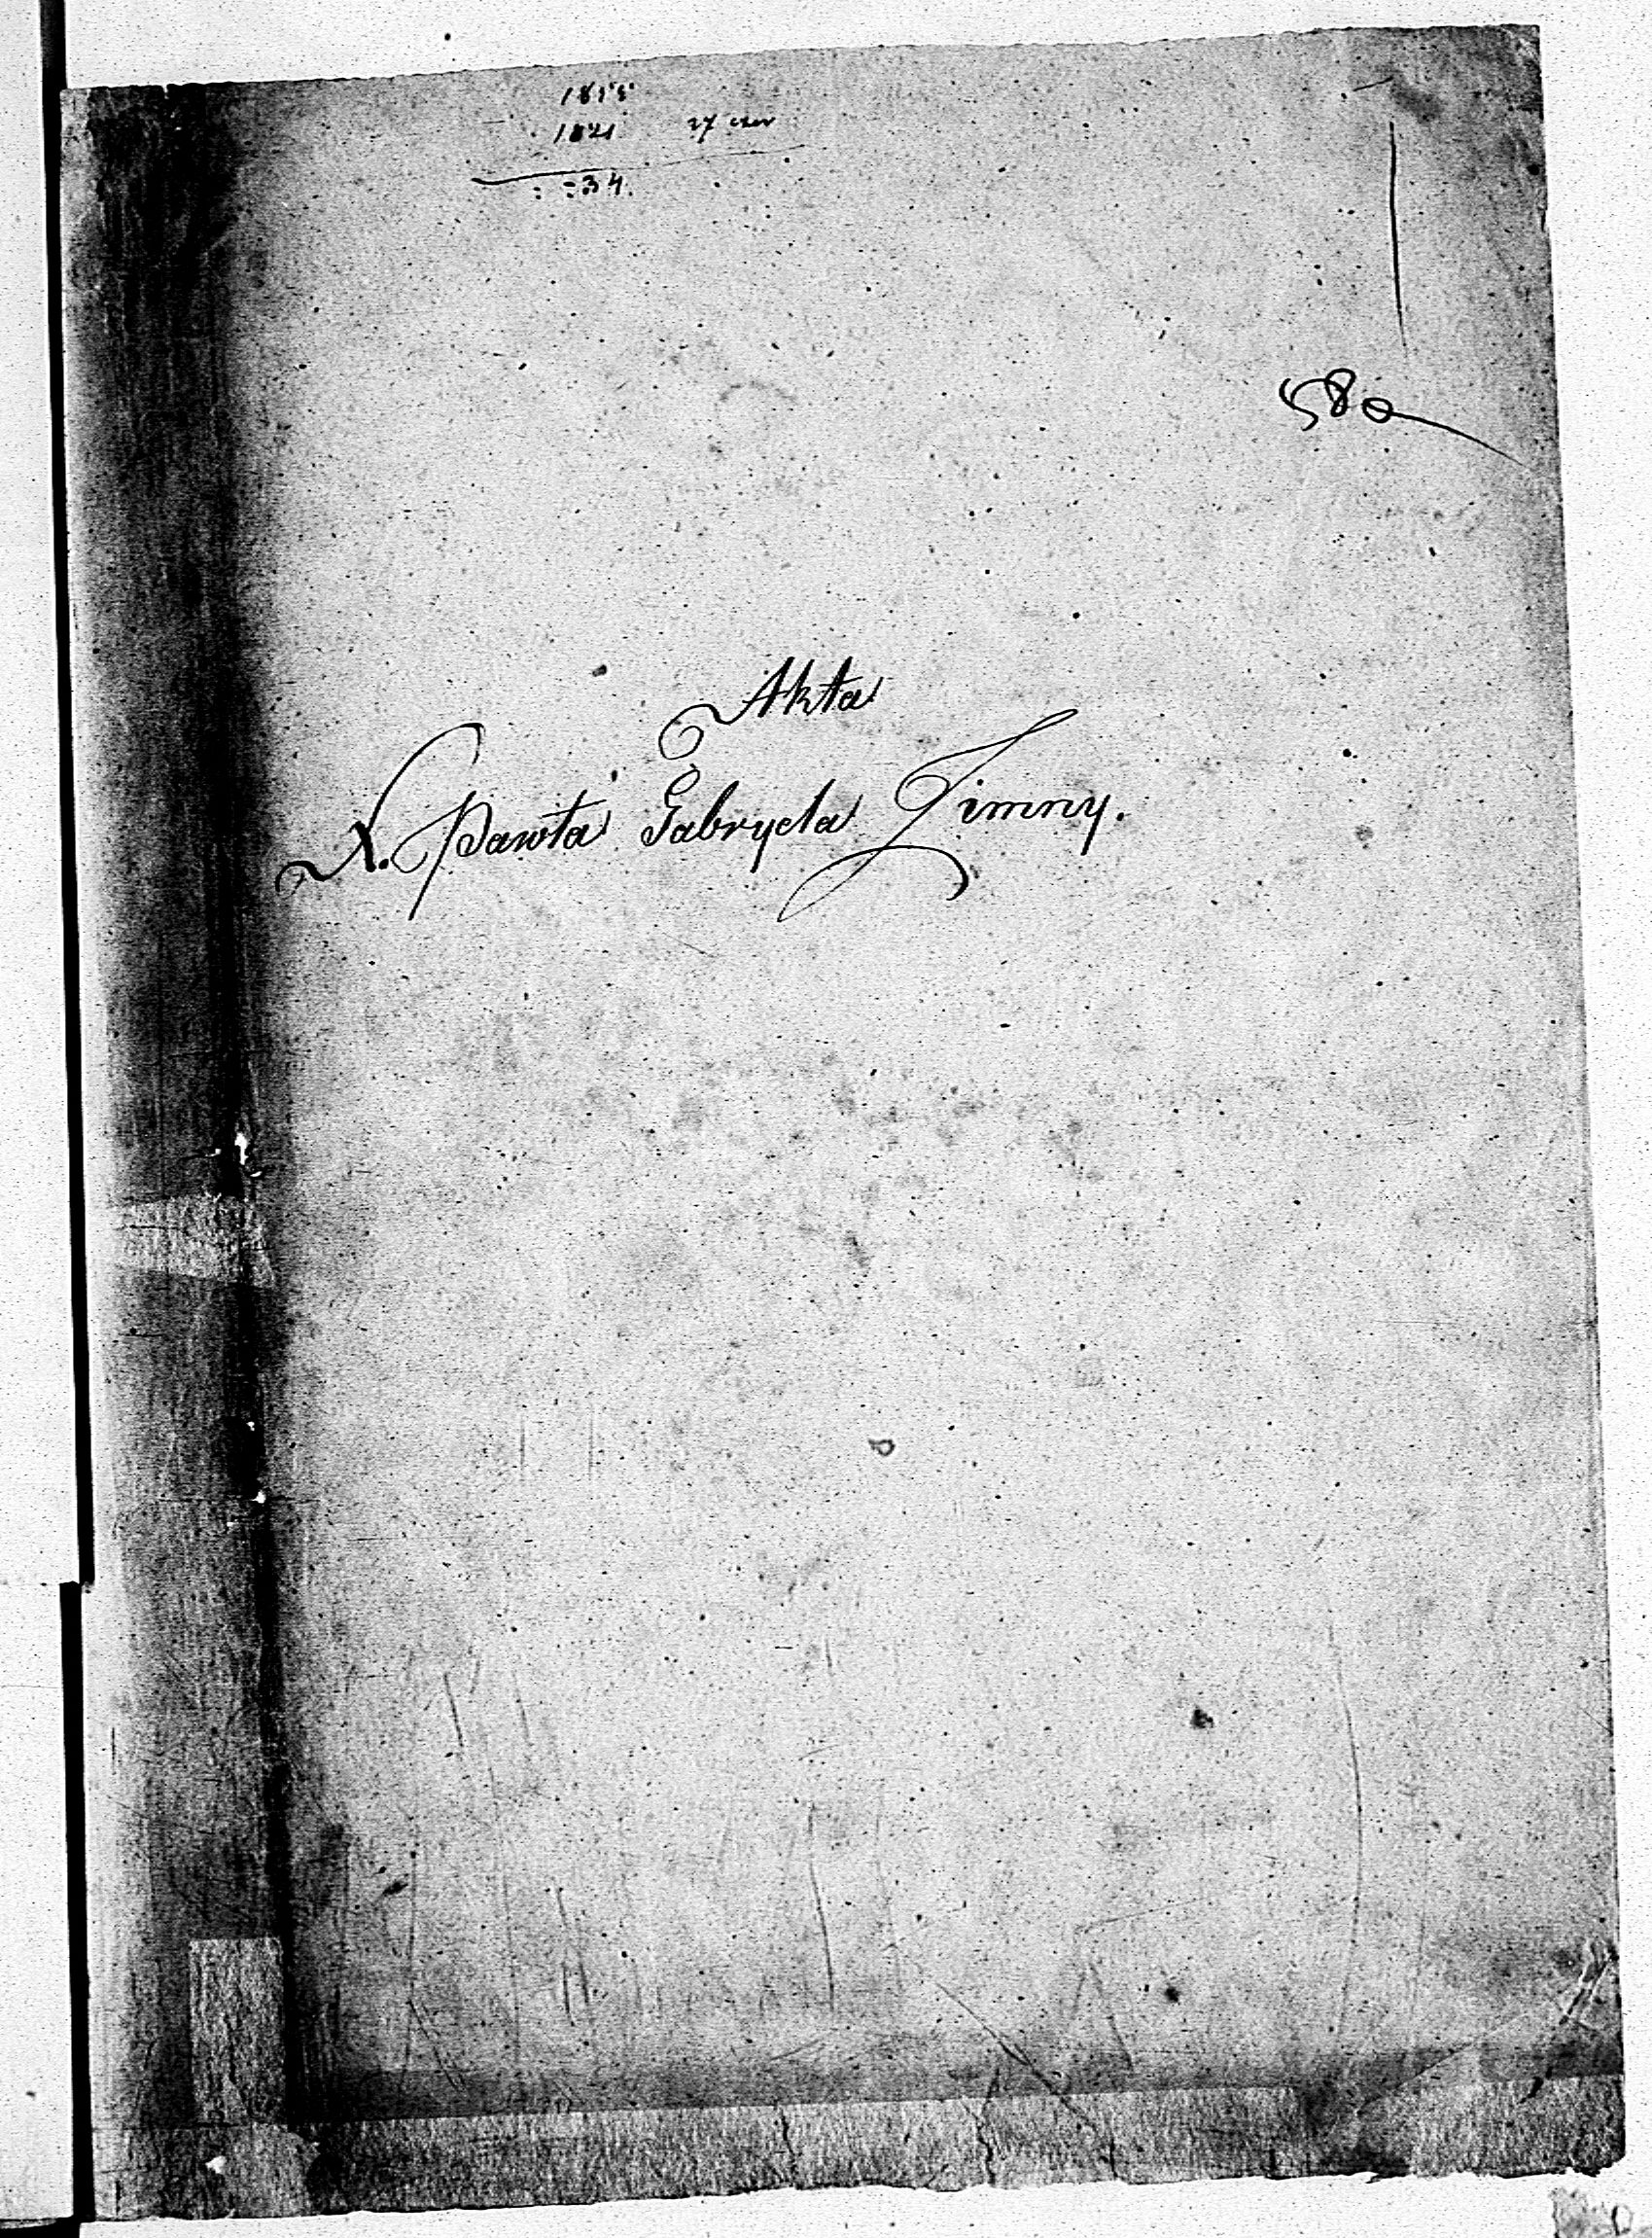 1855
1821 27 czer
34.
580
Akta
X. Pawła Gabryela Zimny.